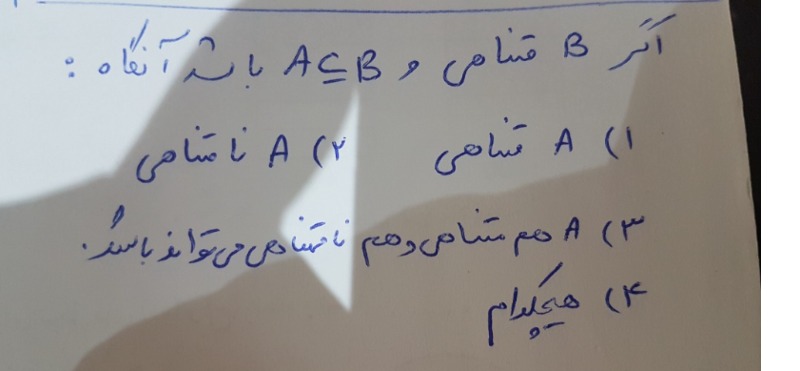 اگر B متناهی و A⊆B باشد آنگاه :
۱) A متناهی ۲) A نامتناهی
۳) A هم متناهی و هم نامتناهی می تواند باشد.
۴) هیچکدام